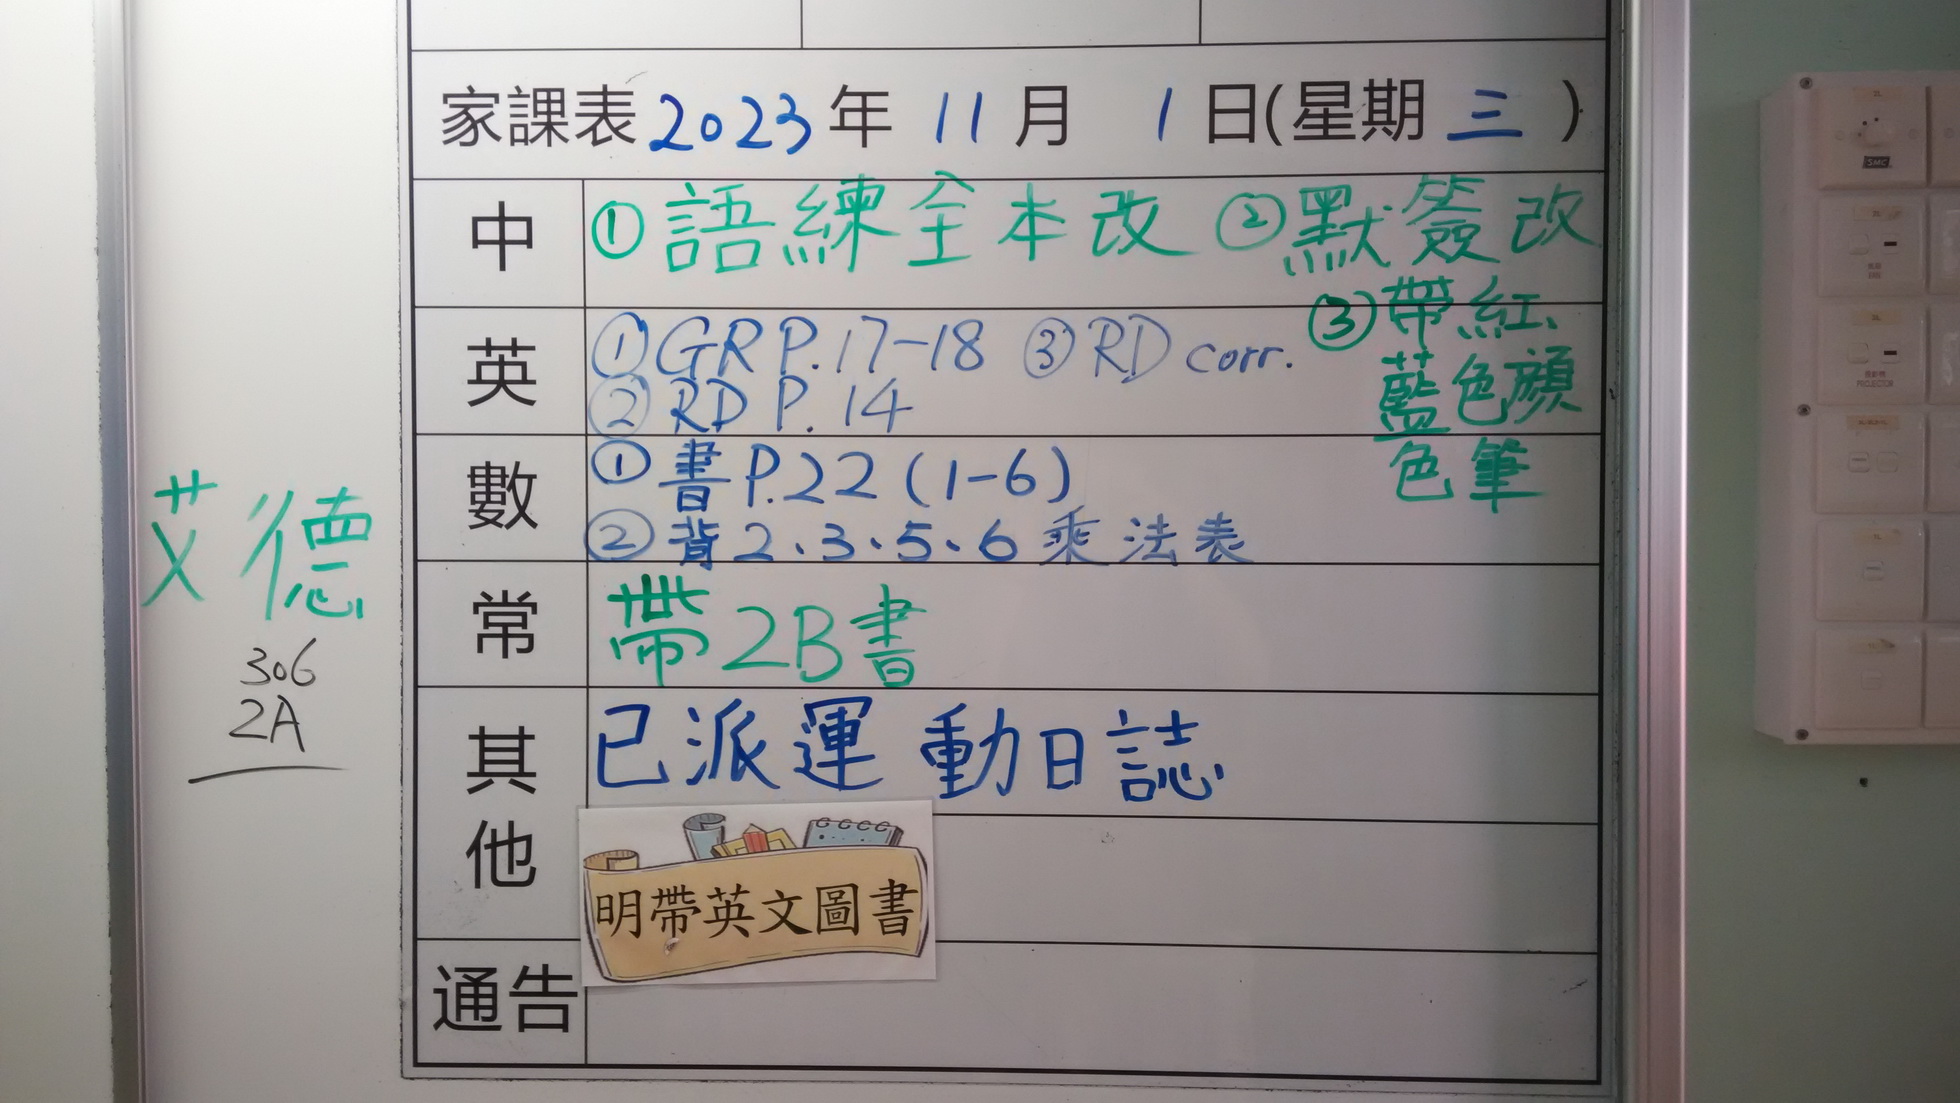 家課表 2023 年 11 月 1 日(星期 三 )
中 ①語練全本改 ②默簽改
③帶紅、
藍色顏
色筆
英 ①GR P.17-18 ③RD corr.
②RD P.14
數 ①書P.22(1-6)
②背2、3、5、6乘法表
常 帶2B書
其他 已派運動日誌
明帶英文圖書
通告
艾德
306
2A
SMC
PROJECTOR